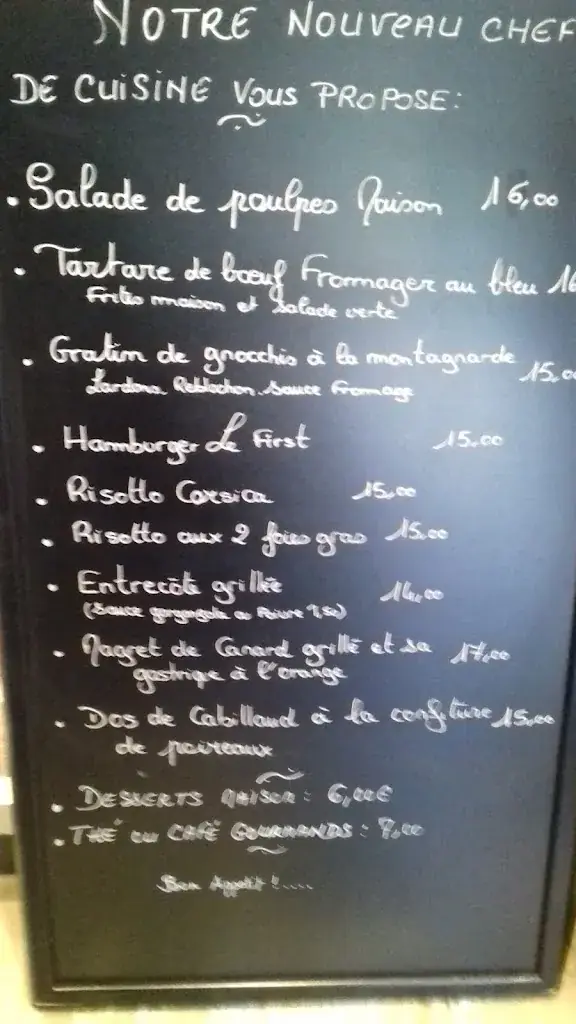 NOTRE NOUVEAU CHEF
DE CUISINE VOUS PROPOSE:
. Salade de poulpes Maison 16,00
. Tartare de bœuf Fromager au bleu 16
Frites maison et salade verte
. Gratin de gnocchis à la montagnarde 15.00
Lardons Reblochon sauce Fromage
. Hamburger Le First 15.00
. Risotto Corsica 15,00
. Risotto aux 2 foies gras 15.00
. Entrecôte grillée 14,00
(sauce gorgonzola ou Poivre
. Magret de Canard grillé et sa 17,00
gastrique à l'orange
. Dos de Cabillaud à la confiture 15,00
de poireaux
. DESSERTS MAISON: 6,00€
. THÉ OU CAFÉ GOURMANDS:
Bon Appétit !....